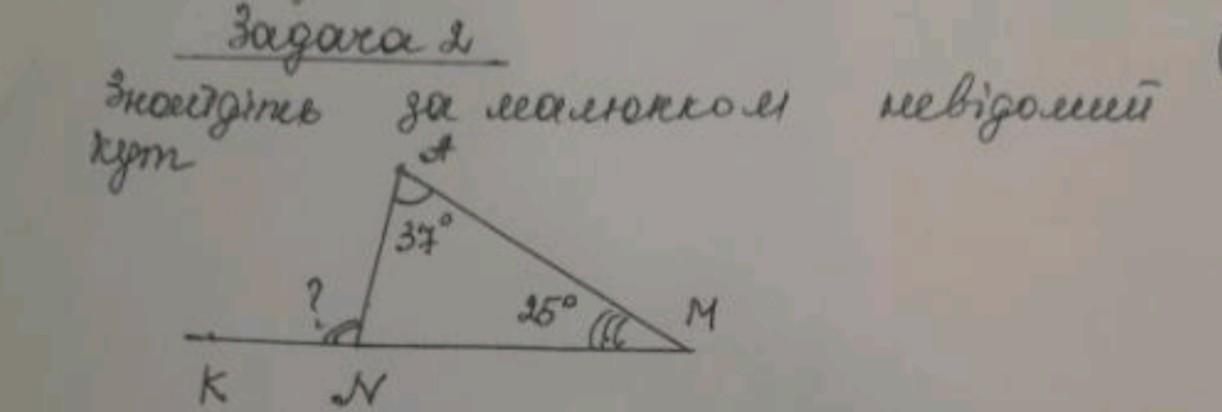 Задача 2
Знайдіть за малюнком невідомий
кут
A
37°
?
25°
M
K
N